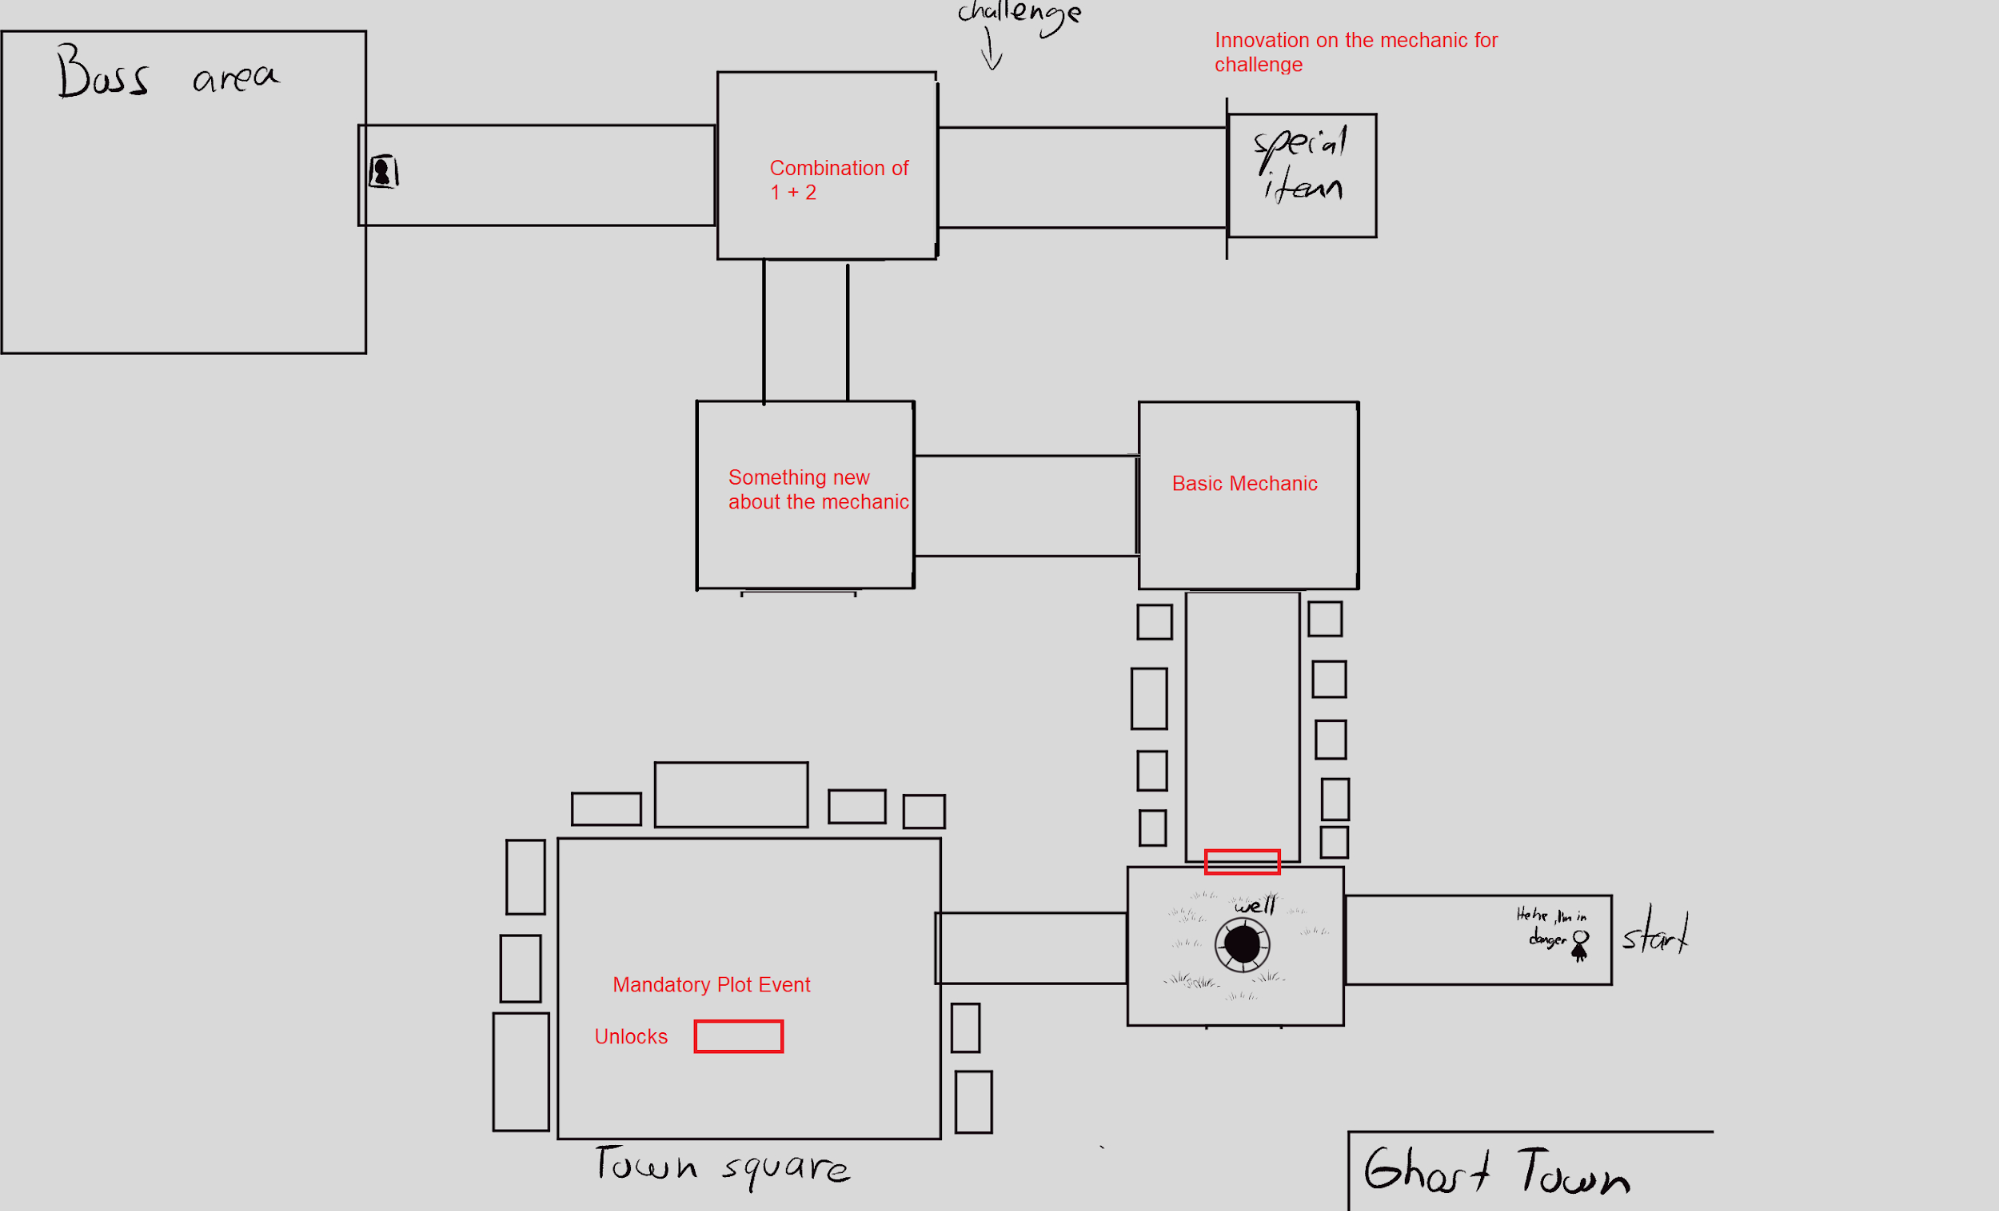 challenge
Innovation on the mechanic for
challenge
Boss area
special
item
Combination of
1 + 2
Something new
about the mechanic
Basic Mechanic
well
Hehe, I'm in
danger
start
Mandatory Plot Event
Unlocks
Town square
Ghost Town